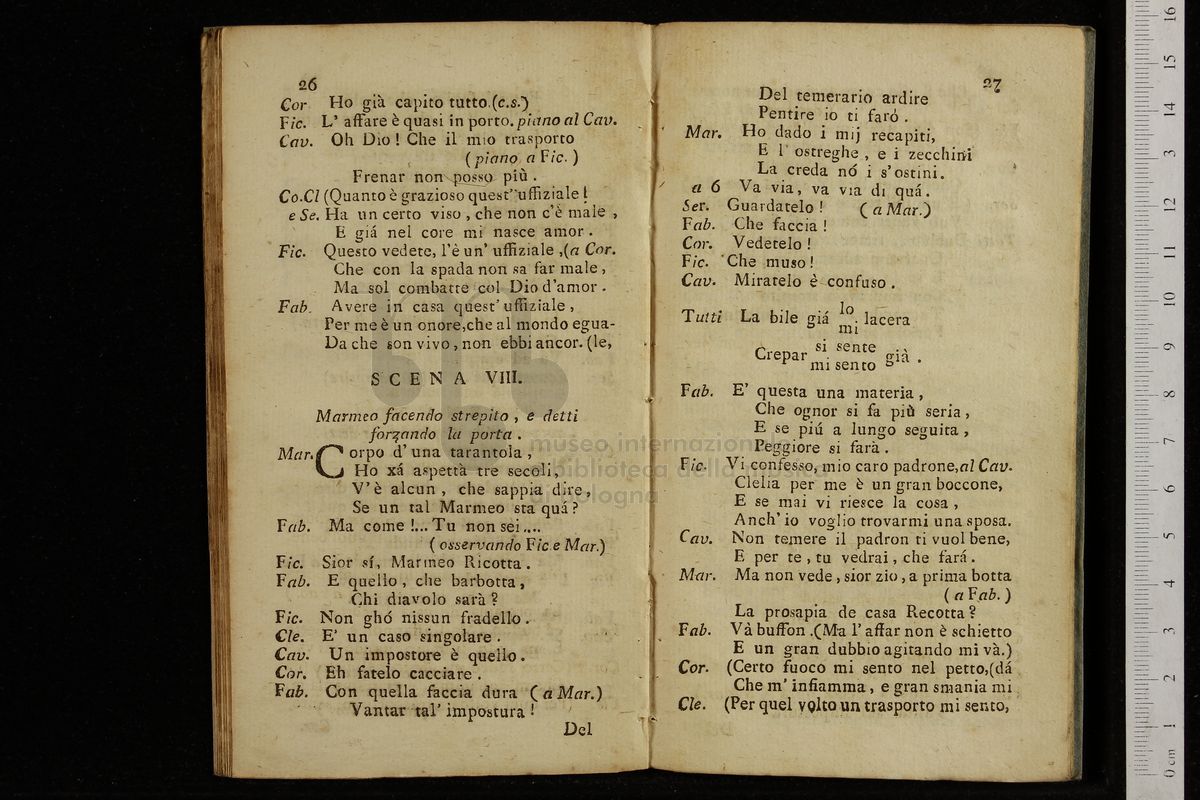 26
Cor Ho già capito tutto.(c.s.)
Fic. L' affare è quasi in porto.piano al Cav.
Cav. Oh Dio ! Che il mio trasporto
( piano a Fic. )
Frenar non posso più .
Co.Cl (Quanto è grazioso quest' uffiziale !
e Se. Ha un certo viso , che non c'è male ,
E giá nel core mi nasce amor .
Fic. Questo vedete, l'è un' uffiziale ,(a Cor.
Che con la spada non sa far male ,
Ma sol combatte col Dio d'amor .
Fab. Avere in casa quest' uffiziale ,
Per me è un onore,che al mondo egua-
Da che son vivo , non ebbi ancor. (le,
SCENA VIII.
Marmeo facendo strepito , e detti
forzando la porta .
Mar. Corpo d' una tarantola ,
Ho xá aspettà tre secoli,
V' è alcun , che sappia dire,
Se un tal Marmeo sta quá ?
Fab. Ma come !... Tu non sei ....
( osservando Fic e Mar.)
Fic. Sior sí, Marmeo Ricotta .
Fab. E quello , che barbotta ,
Chi diavolo sarà ?
Fic. Non ghó nissun fradello .
Cle. E' un caso singolare .
Cav. Un impostore è quello .
Cor. Eh fatelo cacciare .
Fab. Con quella faccia dura ( a Mar.)
Vantar tal' impostura !
Del
27
Del temerario ardire
Pentire io ti faró .
Mar. Ho dado i mij recapiti,
E l' ostreghe , e i zecchini
La creda nó i s' ostini.
a 6 Va via, va via di quá .
Ser. Guardatelo ! ( a Mar.)
Fab. Che faccia !
Cor. Vedetelo !
Fic. Che muso !
Cav. Miratelo è confuso .
Tutti La bile giá lo lacera
mi
Crepar si sente già .
mi sento
Fab. E' questa una materia ,
Che ognor si fa più seria ,
E se piú a lungo seguita ,
Peggiore si farà .
Fic. Vi confesso, mio caro padrone,al Cav.
Clelia per me è un gran boccone,
E se mai vi riesce la cosa ,
Anch' io voglio trovarmi una sposa.
Cav. Non temere il padron ti vuol bene,
E per te , tu vedrai , che fará .
Mar. Ma non vede , sior zio , a prima botta
( a Fab. )
La prosapia de casa Recotta ?
Fab. Và buffon .(Ma l' affar non è schietto
E un gran dubbio agitando mi và.)
Cor. (Certo fuoco mi sento nel petto,(dá
Che m' infiamma , e gran smania mi
Cle. (Per quel volto un trasporto mi sento,
museo internazionale
biblioteca della musica
di bologna
0 cm 1 2 3 4 5 6 7 8 9 10 11 12 13 14 15 16